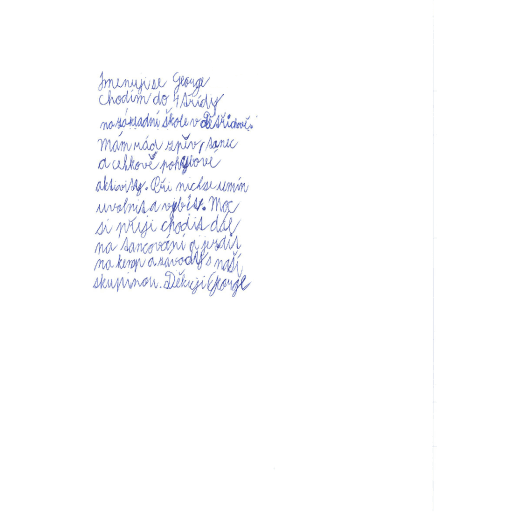 Jmenuji se George
chodím do 4 třídy
na základní škole v
Mám rád zpěv, tanec
a celkově pohybové
aktivity. Při nich se umím
uvolnit a vybít. Moc
si přeji chodit dál
na tancování a jezdit
na kemp a závody s naší
skupinou. Děkuji George